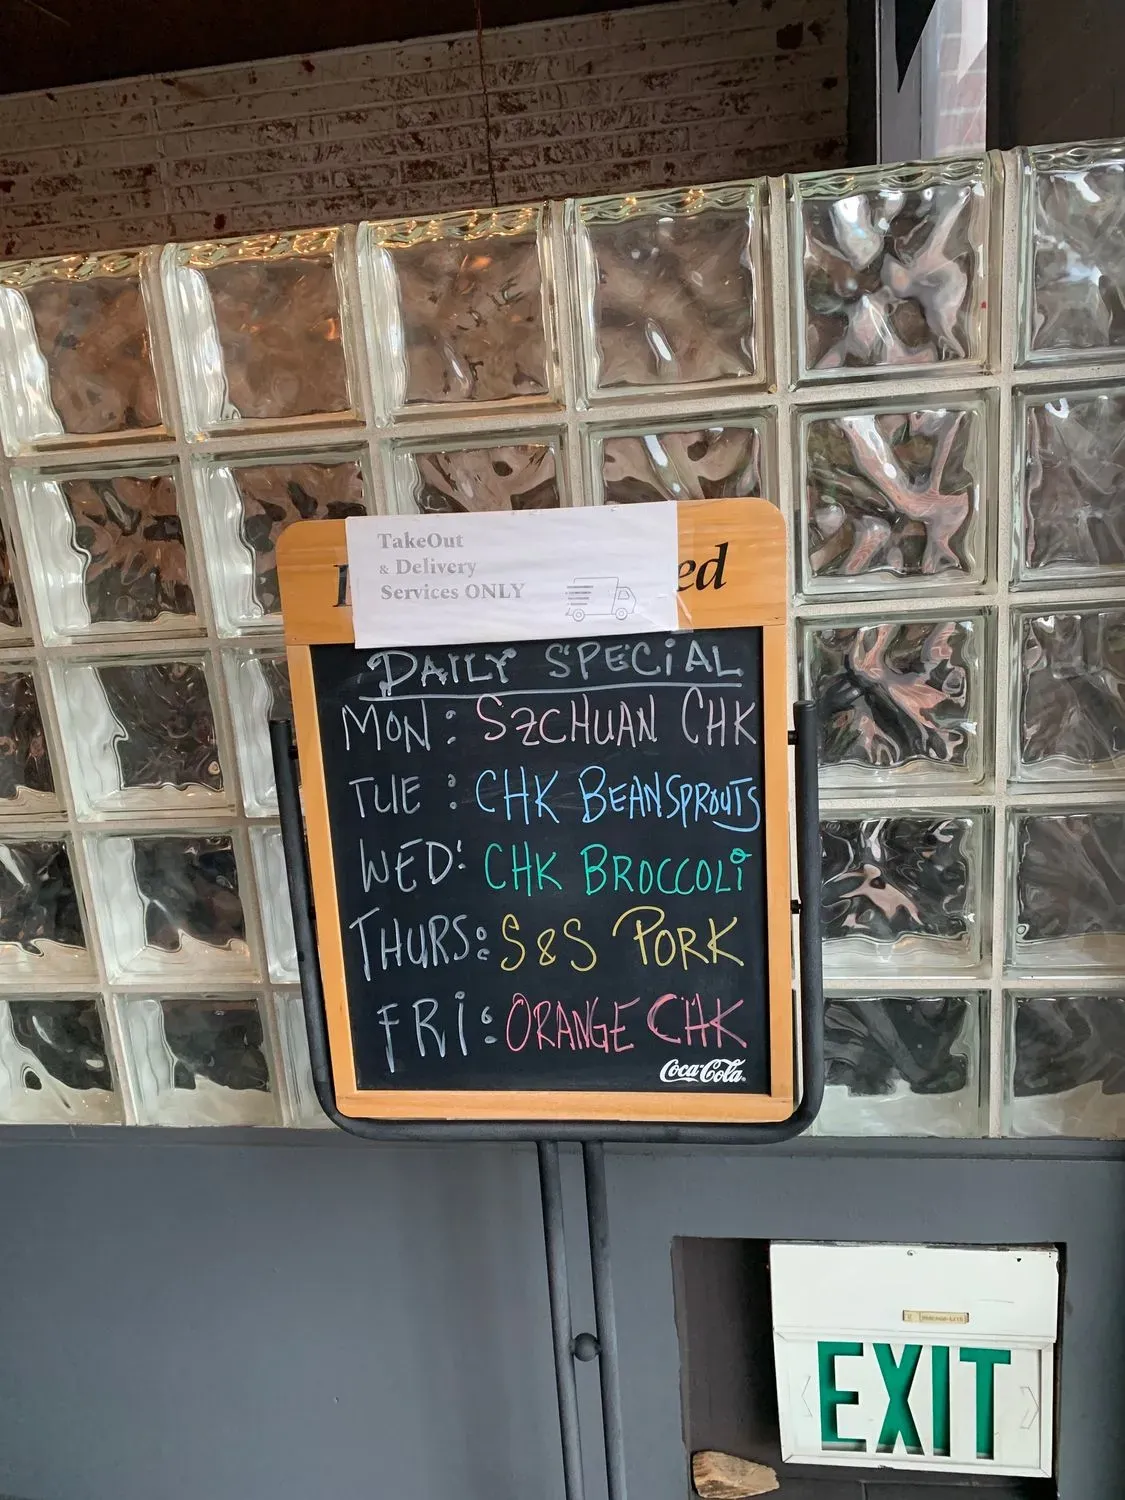 TakeOut
& Delivery
Services ONLY
ed
DAILY SPECIAL
MON: SZCHUAN CHK
TUE: CHK BEANSPROUTS
WED: CHK BROCCOLI
THURS: S&S PORK
FRI: ORANGE CHK
Coca-Cola
EXIT